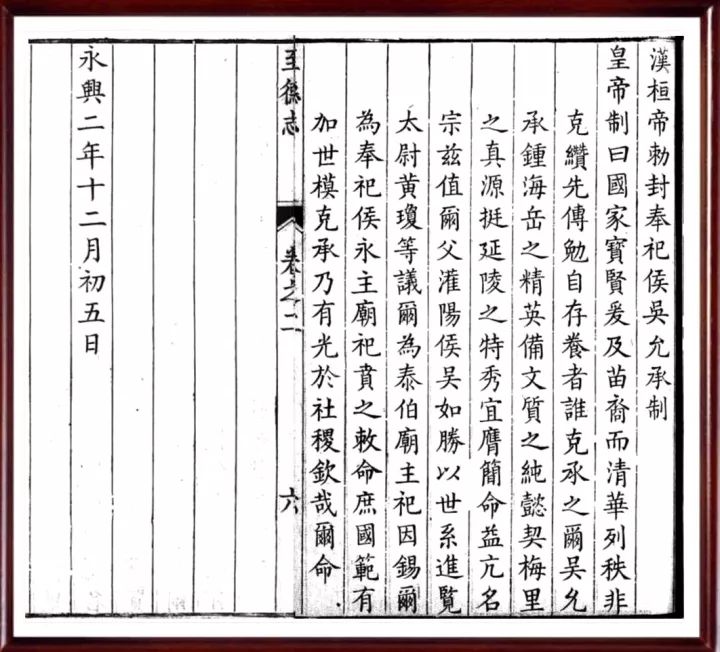 漢桓帝勅封奉祀侯吳允承制
皇帝制曰國家寶賢爰及苗裔而清華列秩非
克纘先傳勉自存養者誰克承之爾吳允
承鍾海岳之精英備文質之純懿契梅里
之真源挺延陵之特秀宜膺簡命益亢名
宗兹值爾父灌陽侯吳如勝以世系進覽
太尉黃瓊等議爾為泰伯廟主祀因錫爾
為奉祀侯永主廟祀賁之敕命庶國範有
加世模克承乃有光於社稷欽哉爾命
至德志 卷之二 六
永興二年十二月初五日